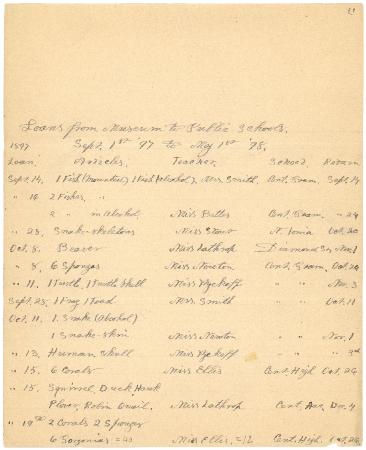 Loans from Museum to Public Schools.
Sept. 1st '97 to May 1st '98.
1897
Loan. Articles. Teacher. School. Return
Sept. 14, 1 Fish (mounted) 1 Fish (Alcohol), Mrs. Smith, Cent. Gram. Sept. 17
" 16 2 Fishes, "
2 " in alcohol, Miss Butler Cent. Gram. " 24
" 28, Snake-skeletons Miss Stow N. Ionia Oct. 20
Oct. 8, Beaver Miss Lathrop Diamond St. Nov. 1
" 8, 6 Sponges Miss Newton Cent. Gram. Oct. 24
" 11, 1 Turtle, 1 Turtle Shell Miss Wyckoff " " Nov. 3
Sept. 28, 1 Frog 1 Toad Mrs. Smith " " Oct. 11
Oct. 11, 1 Snake (Alcohol)
1 Snake-skin Miss Newton " " Nov. 1
" 13, Human Skull Miss Wyckoff " " " 3rd
" 15, 6 Corals Miss Ellis Cent. High Oct. 26
" 15, Squirrel, Duck, Hawk
Plover, Robin Quail, Miss Lathrop Cent. Ave. Dec. 4
" 19th 2 Corals 2 Sponges
6 Gorgonias = 10 Miss Ellis, = 12 Cent. High. Oct. 26